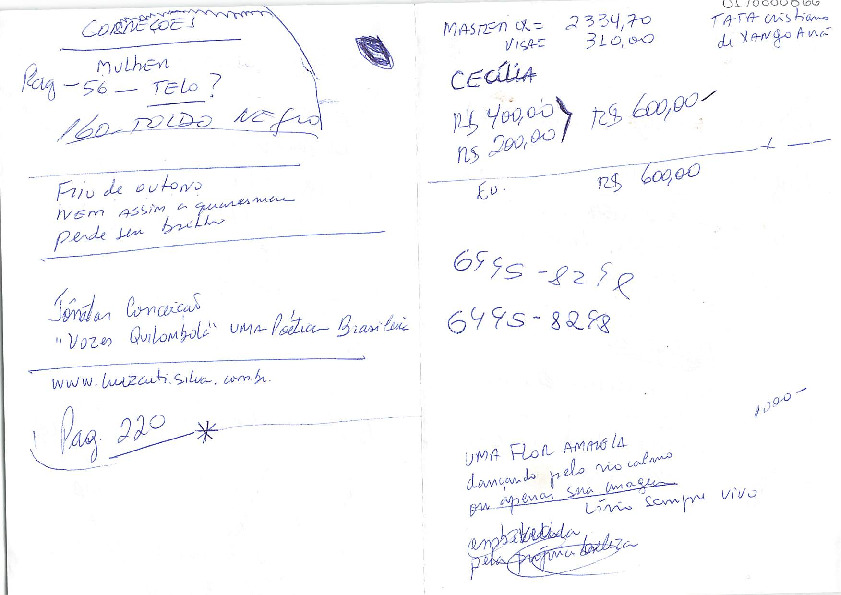 CORREÇÕES
MULHER
Pag - 56 - TELO?
160 TOLDO NEGRO
FRIU de outono
NEM ASSIM a quaresma
Perde seu brilho
Jônatas Conceição
"Vozes Quilombola" UMA Poética Brasileira
www.luizcuti.silva.com.br.
Pag. 220 *
MASTER = 2334,70
VISA = 310,00
TATA Cristiano
de XANGO
CECÍLIA
R$ 400,00 R$ 600,00
R$ 200,00
Eu. R$ 600,00
6495-8298
6495-8298
UMA FLOR AMARELA
dançando pelo rio calmo
ou apenas sua imagem
Lírio sempre vivo
pela própria beleza